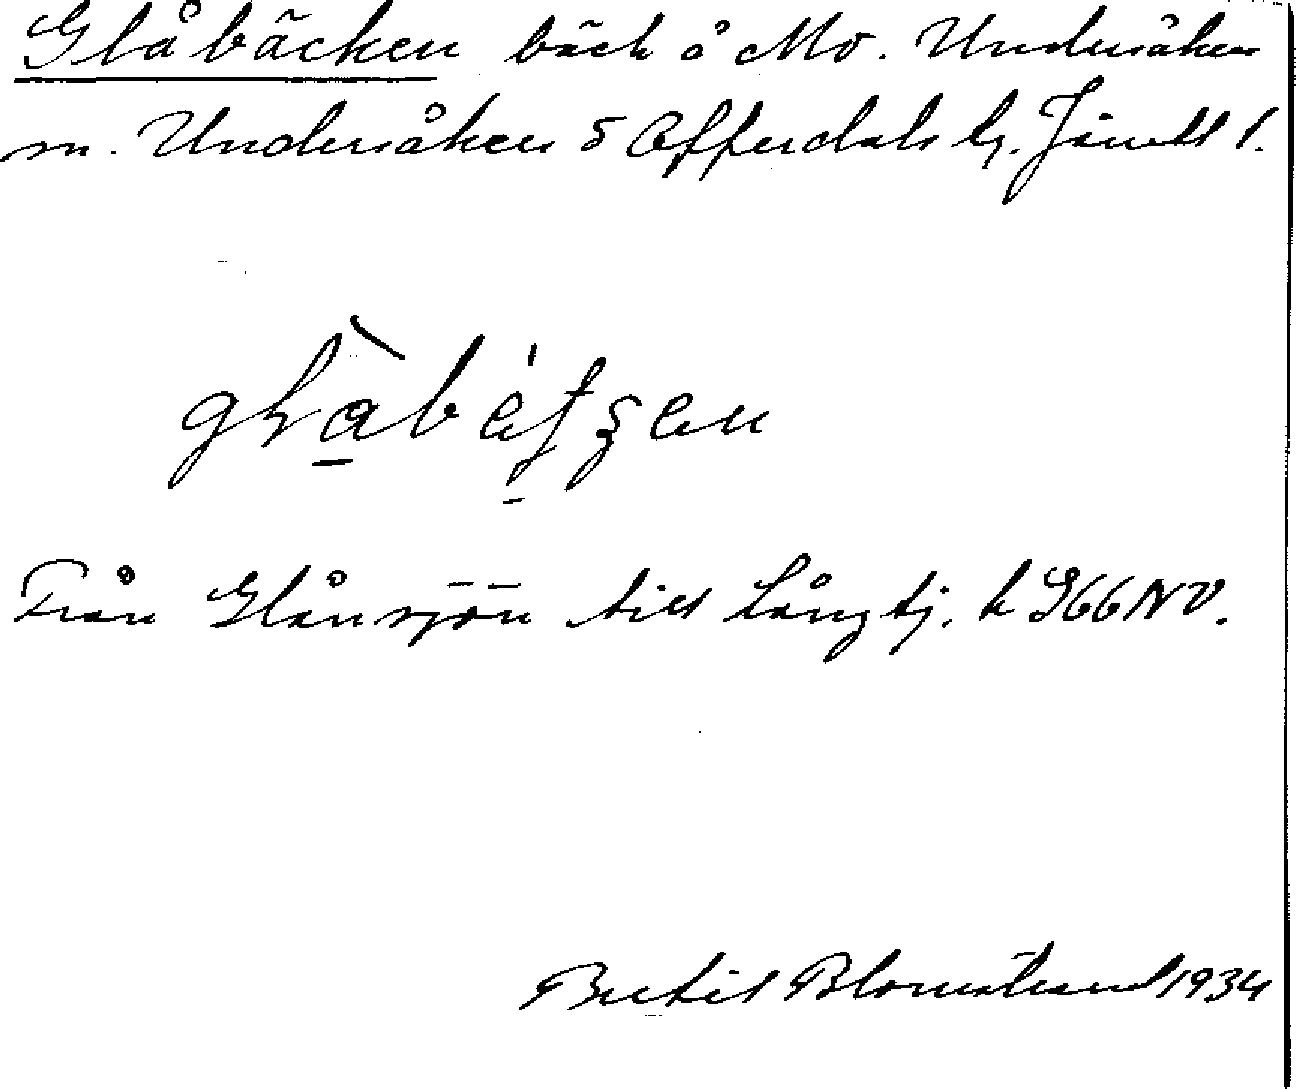 Glåbäcken bäck å Mo. Undersåker
sn. Undersåkers o Offerdals tg. Jämtl l.
Från Glånsjön till Långtj. k G66NV.
Bertil Blomstrand 1934